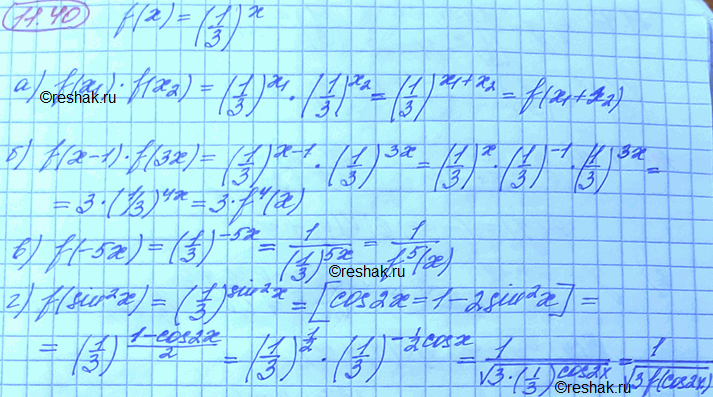 11.40 f(x) = (1/3)^x
а) f(x₁)·f(x₂) = (1/3)^x₁ · (1/3)^x₂ = (1/3)^(x₁+x₂) = f(x₁+x₂)
©reshak.ru
©reshak.ru
б) f(x-1)·f(3x) = (1/3)^(x-1) · (1/3)^(3x) = (1/3)^x · (1/3)^(-1) · (1/3)^(3x) =
= 3·(1/3)^(4x) = 3·f⁴(x)
в) f(-5x) = (1/3)^(-5x) = 1/(1/3)^(5x) = 1/f⁵(x)
©reshak.ru
г) f(sin²x) = (1/3)^(sin²x) = [cos2x = 1-2sin²x] =
©reshak.ru
= (1/3)^((1-cos2x)/2) = (1/3)^(1/2) · (1/3)^(-1/2 cosx) = 1/√(3·(1/3)^(cos2x)) = 1/√(3f(cos2x))
©reshak.ru